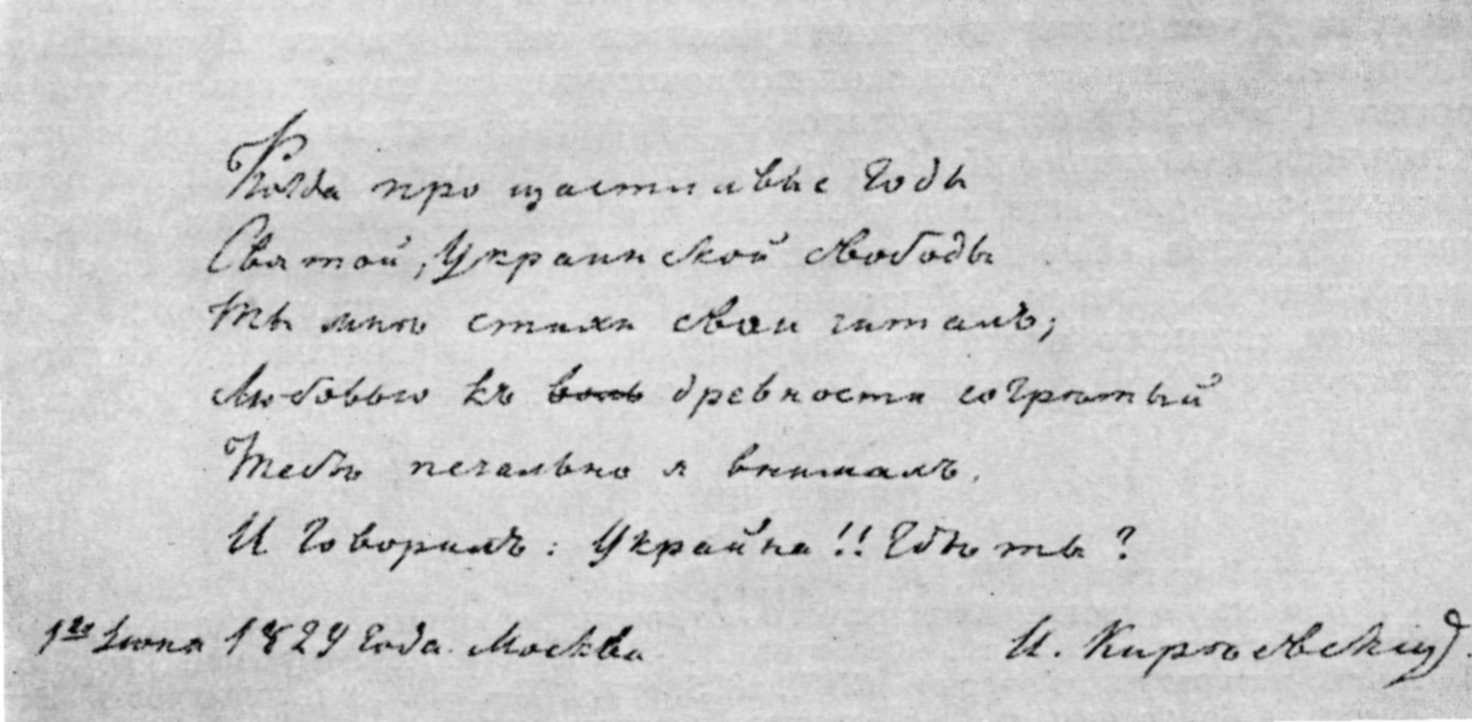 Когда про щастливые годы
Святой, Украинской свободы
Ты мнѣ стихи свои читалъ;
Любовью къ воль древности согрѣтый
Тебѣ печально я внималъ.
И говорилъ: Украйна!! Гдѣ ты?
1го Июня 1829 года. Москва
И. Кирѣевскій.